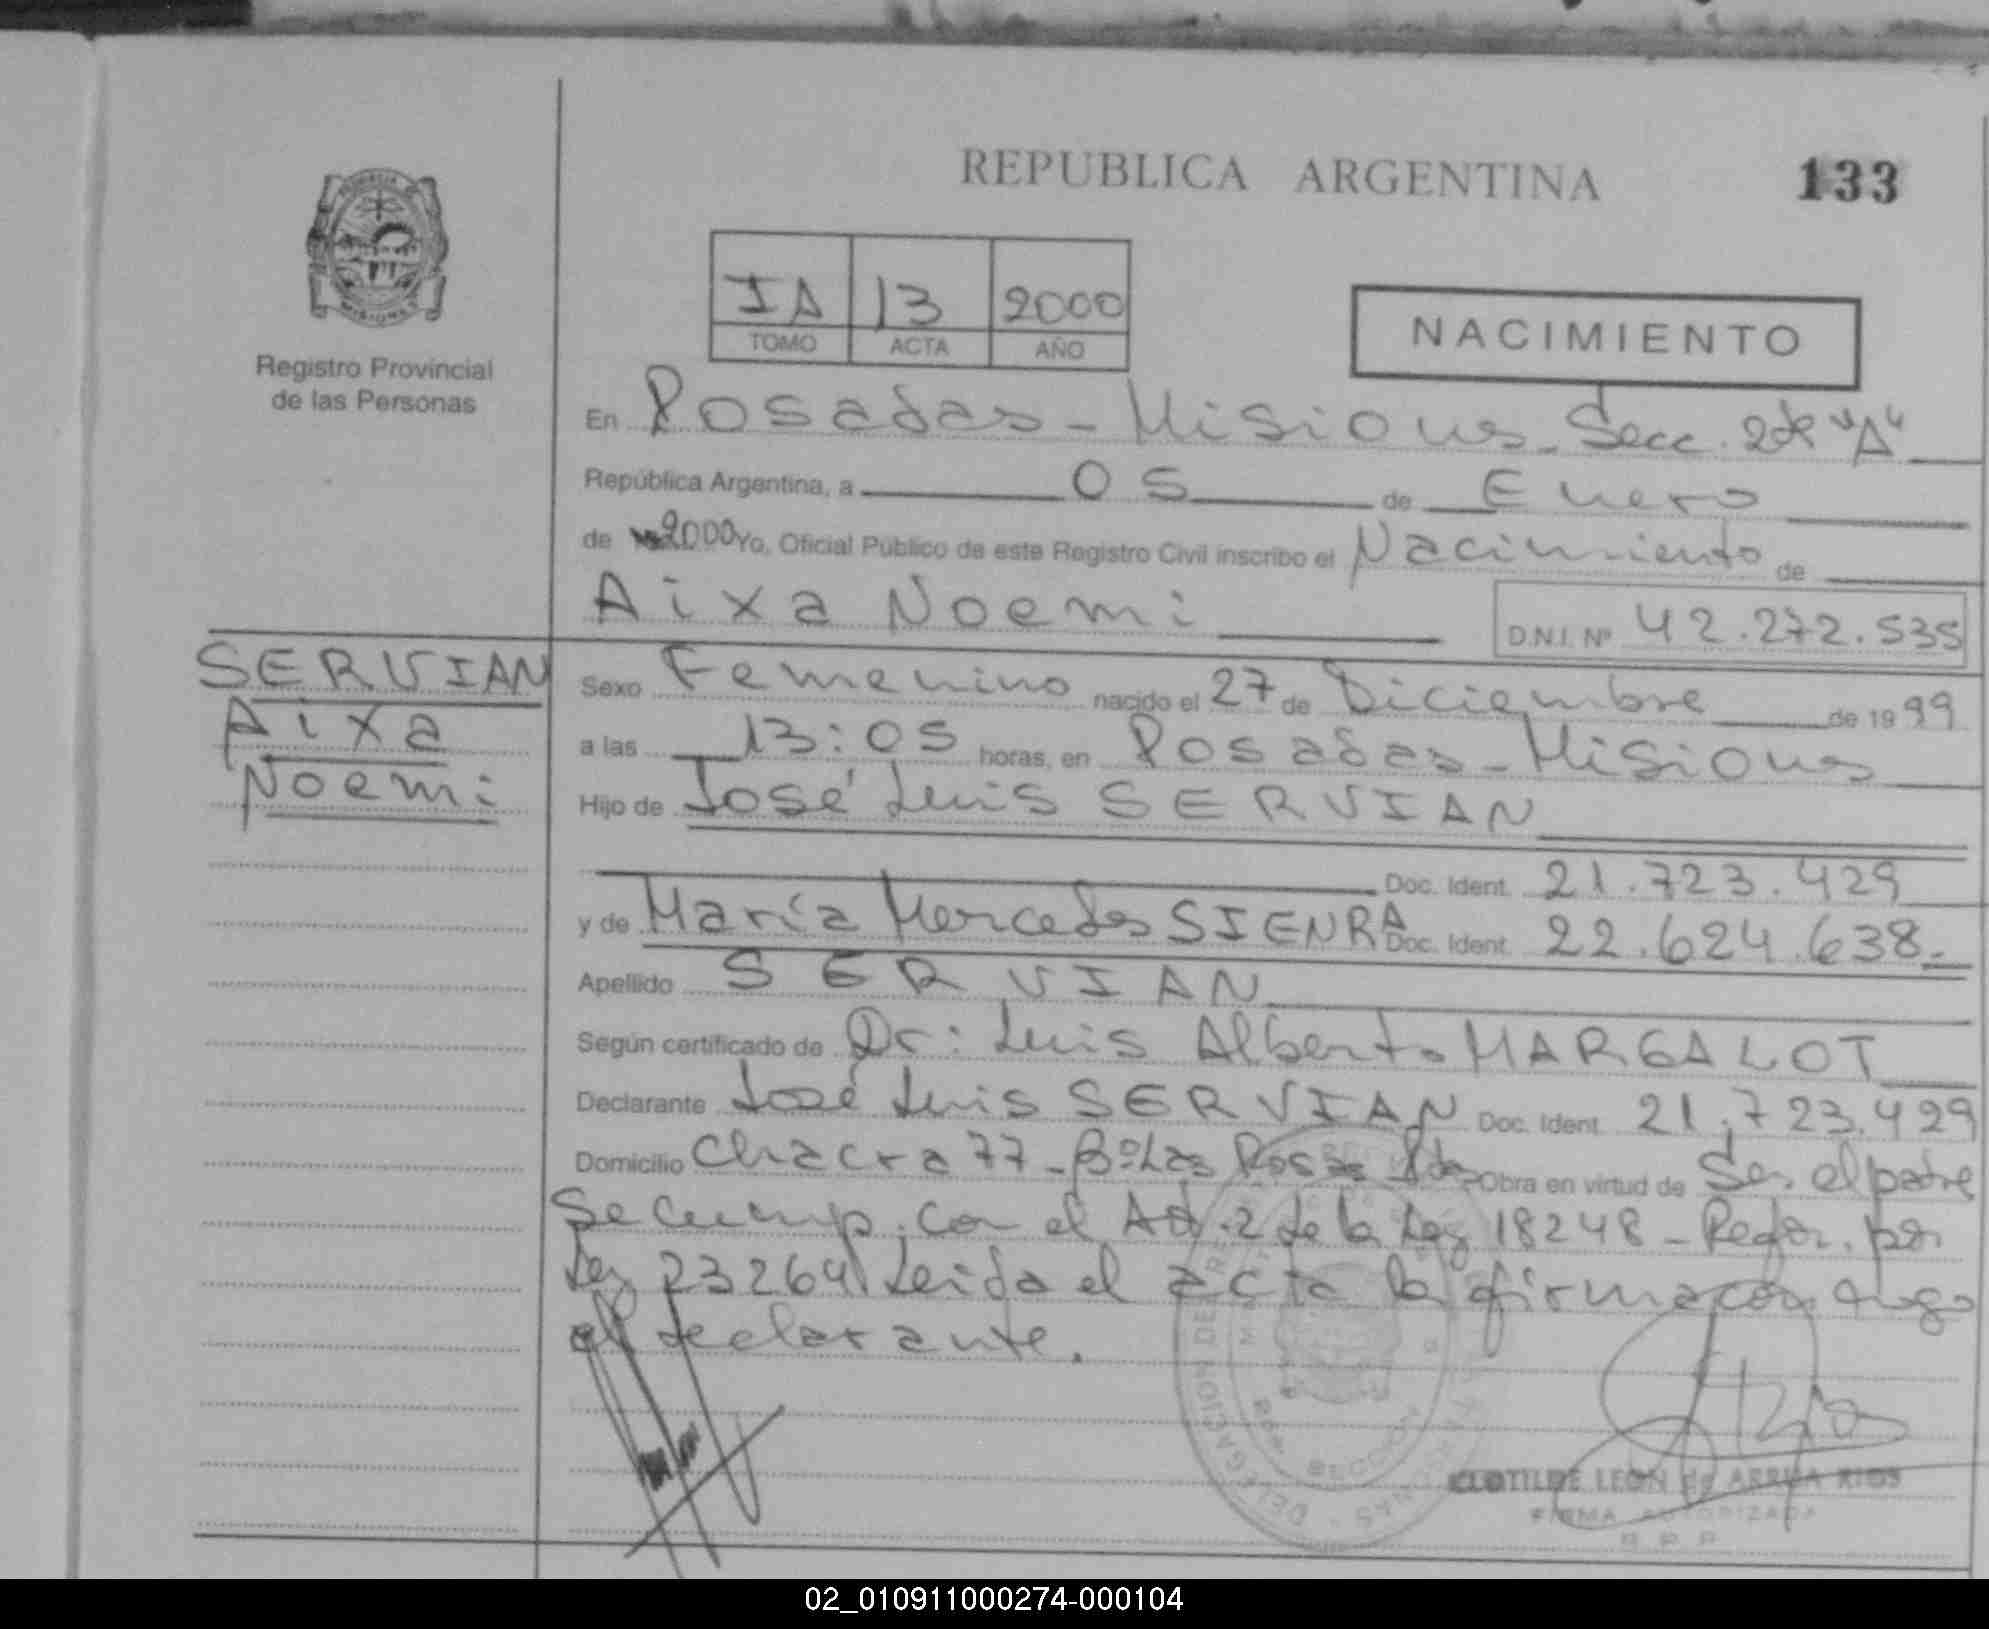 REPUBLICA ARGENTINA
133
PROVINCIA DE
MISIONES
Registro Provincial
de las Personas
IA 13 2000
TOMO ACTA AÑO
NACIMIENTO
En Posadas - Misiones - Secc. 2da "A"
República Argentina, a 05 de Enero
de 2000 Yo, Oficial Público de este Registro Civil inscribo el Nacimiento de
Aixa Noemi
D.N.I. Nº 42.272.535
SERVIAN
Aixa
Noemi
Sexo Femenino nacido el 27 de Diciembre de 1999
a las 13:05 horas, en Posadas - Misiones
Hijo de José Luis SERVIAN
Doc. Ident. 21.723.429
y de María Mercedes SIENRA Doc. Ident. 22.624.638.-
Apellido SERVIAN
Según certificado de Dr: Luis Alberto MARGALOT
Declarante José Luis SERVIAN Doc. Ident. 21.723.429
Domicilio Chacra 77 - Bº Las Rosas Pdas Obra en virtud de Ser el padre
Se cump. con el Art. 2 de la Ley 18248 - Refor. por
Ley 23264 Leida el acta la firma conmigo
el declarante.
CLOTILDE LEON de ARRUA RIOS
FIRMA AUTORIZADA
R P P
02_010911000274-000104